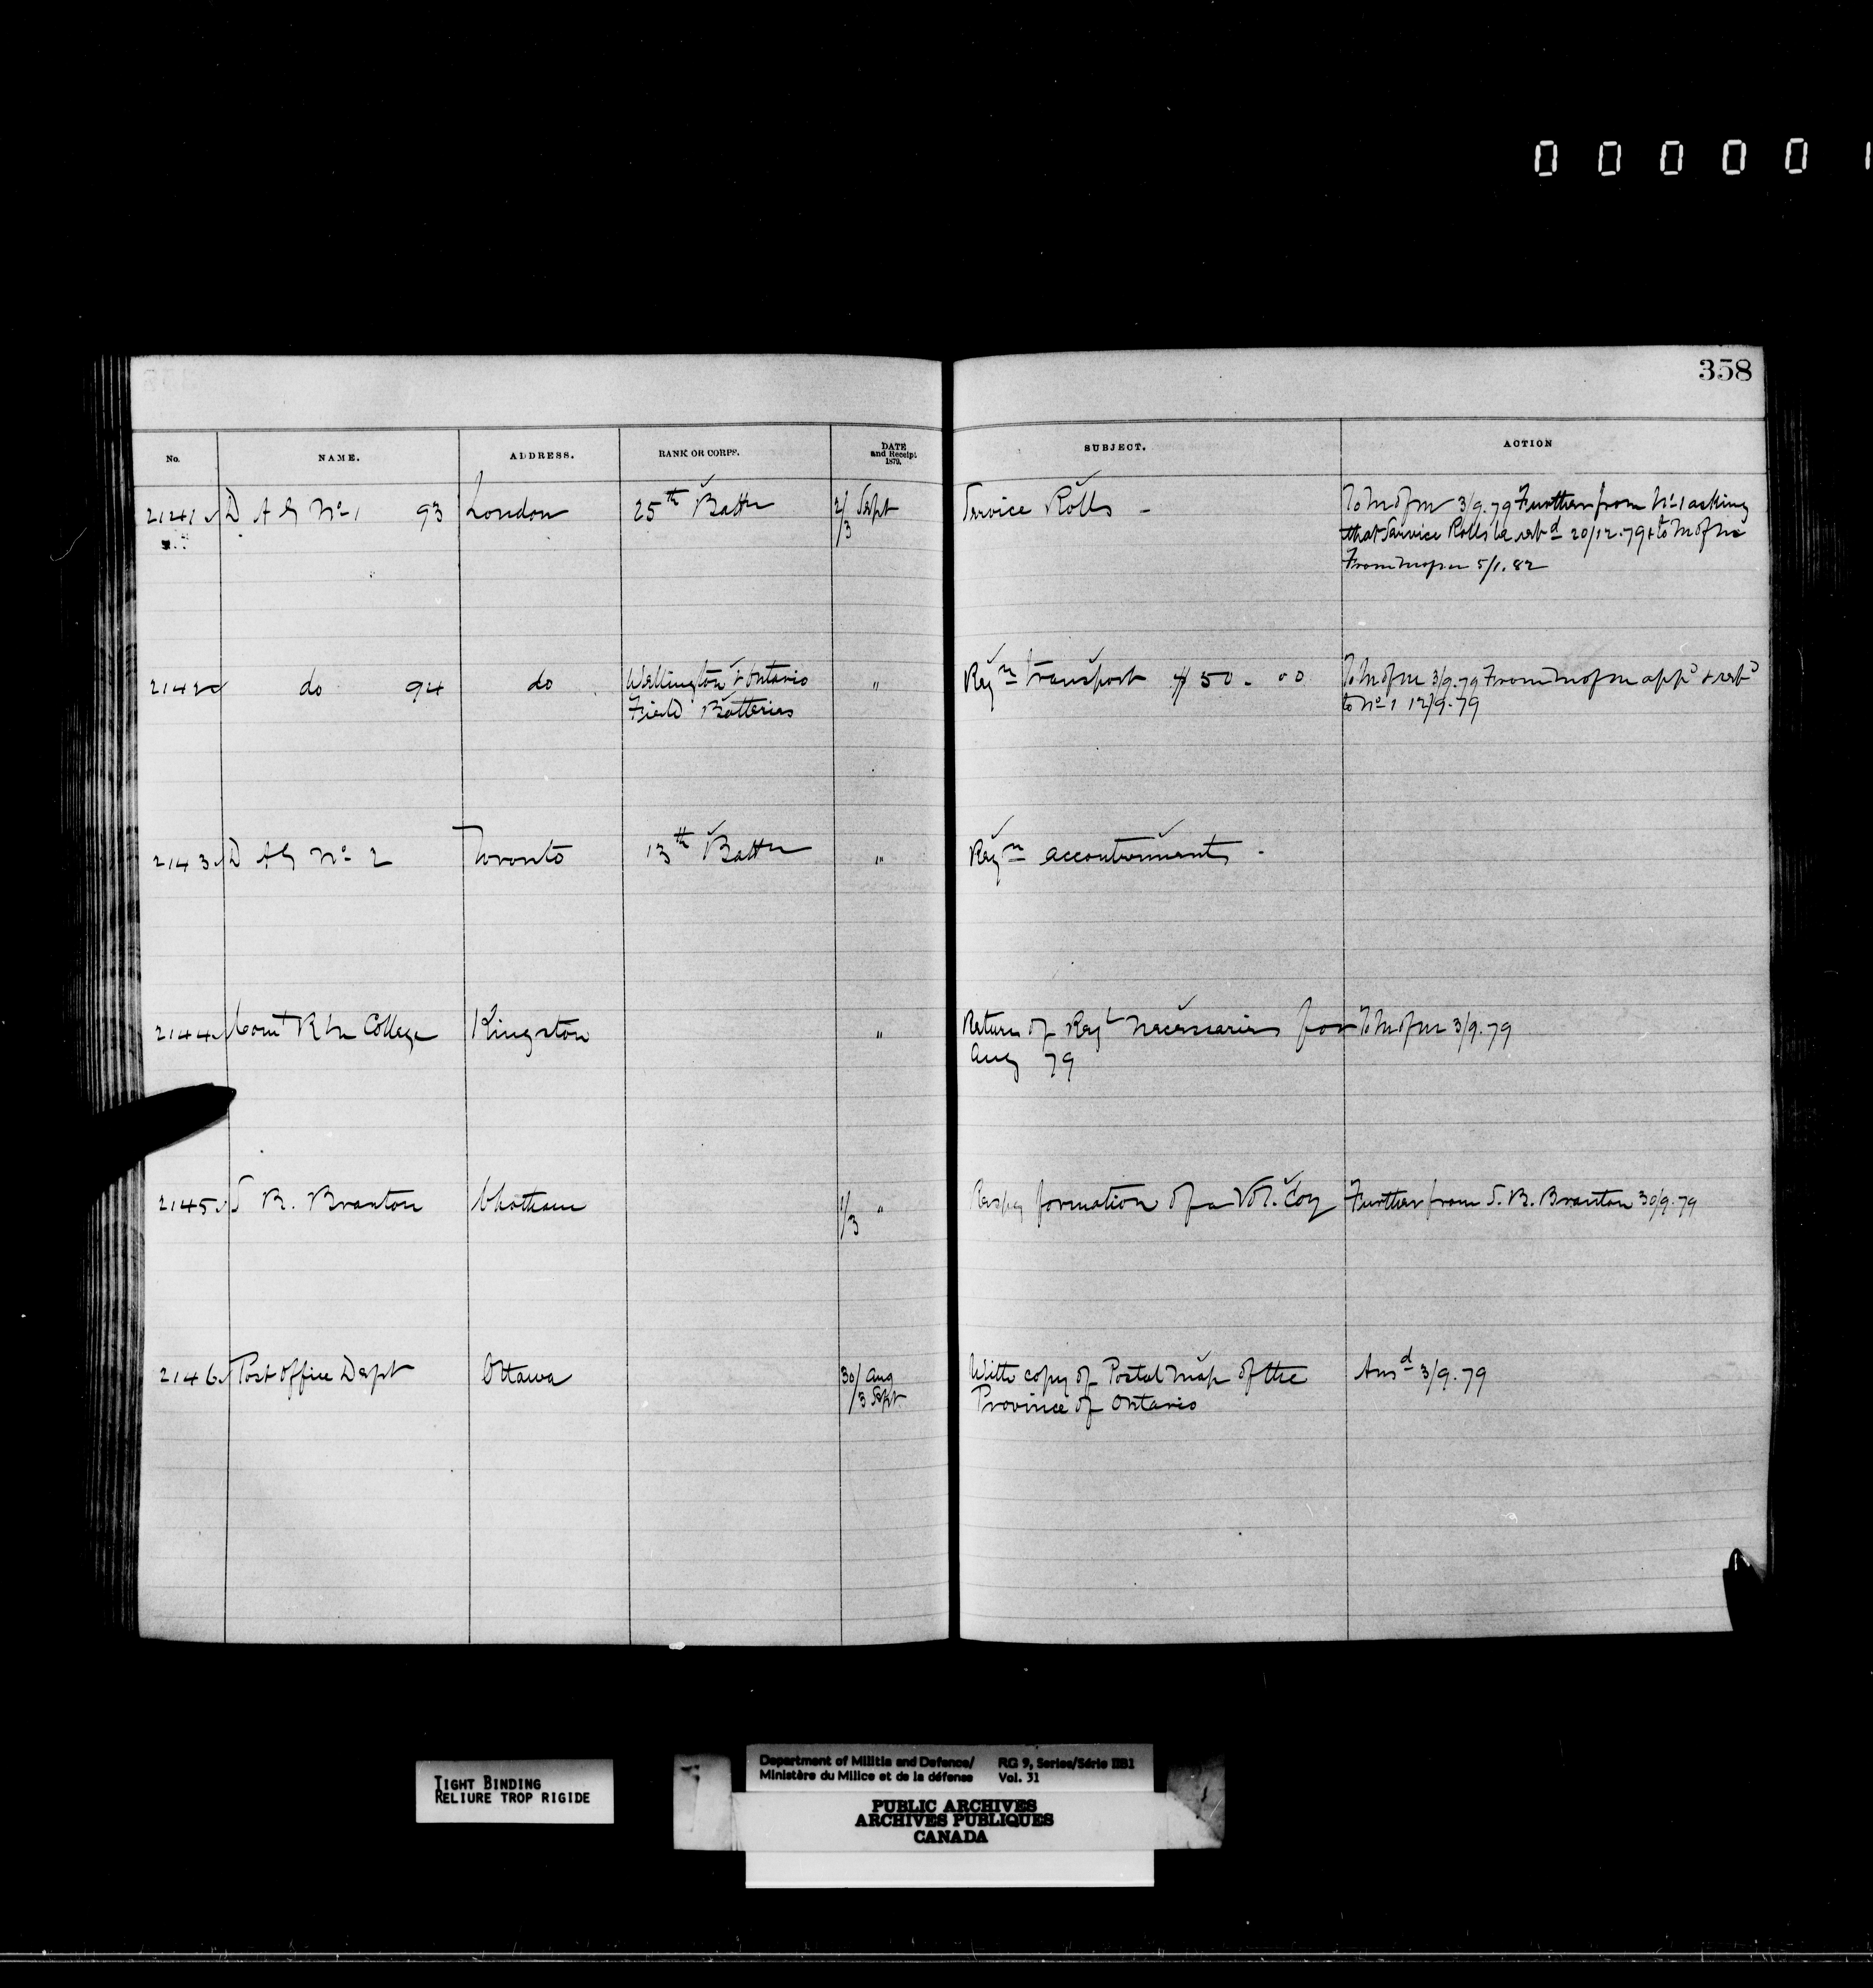 0 0 0 0 0 1
358
No. NAME. ADDRESS. RANK OR CORPS. DATE and Receipt 1879. SUBJECT. ACTION
2141 D A G No 1 93 London 25th Battn 2/3 Sept Service Rolls - To M of M 3/9.79 Further from No 1 asking
that Service Rolls be retd 20/12.79 & to M of M
From M of M 5/1.82
2142 do 94 do Wellington & Ontario Field Batteries " Reqn transport $50.00 To M of M 3/9.79 From M of M appd & retd
to No 1 12/9.79
2143 D A G No 2 Toronto 13th Battn " Reqn accoutrements -
2144 Comt R M College Kingston " Return of Regl necessaries for To M of M 3/9.79
Aug 79
2145 S B. Branton Chatham 1/3 " Respg formation of a Vol. Coy Further from S. B. Branton 30/9.79
2146 Post Office Dept Ottawa 30/Aug /3 Sept With copy of Postal Map of the Ansd 3/9.79
Province of Ontario
TIGHT BINDING
RELIURE TROP RIGIDE
Department of Militia and Defence/ RG 9, Series/Série IIB1
Ministère du Milice et de la défense Vol. 31
PUBLIC ARCHIVES
ARCHIVES PUBLIQUES
CANADA